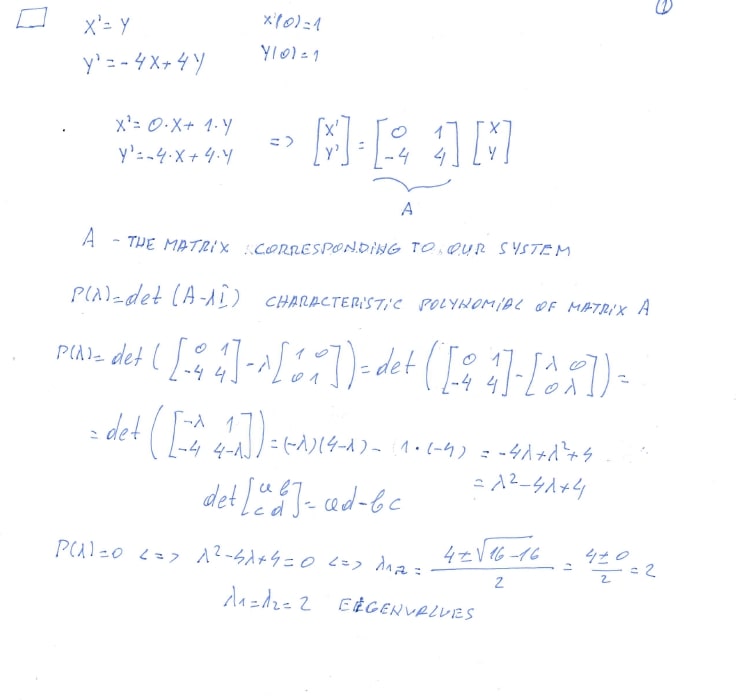 ①
x' = y    x'(0) = 1
y' = -4x + 4y    y(0) = 1
x' = 0·x + 1·y
y' = -4·x + 4·y
=> [x' y'] = [0 1; -4 4] [x y]
A
A - THE MATRIX CORRESPONDING TO OUR SYSTEM
P(λ) = det (A-λI) CHARACTERISTIC POLYNOMIAL OF MATRIX A
P(λ) = det ([0 1; -4 4] - λ[1 0; 0 1]) = det ([0 1; -4 4] - [λ 0; 0 λ]) =
= det ([-λ 1; -4 4-λ]) = (-λ)(4-λ) - 1·(-4) = -4λ + λ² + 4
= λ² - 4λ + 4
det [a b; c d] = ad - bc
P(λ) = 0 <=> λ² - 4λ + 4 = 0 <=> λ₁,₂ = (4 ± √16-16)/2 = (4 ± 0)/2 = 2
λ₁ = λ₂ = 2 EIGENVALUES